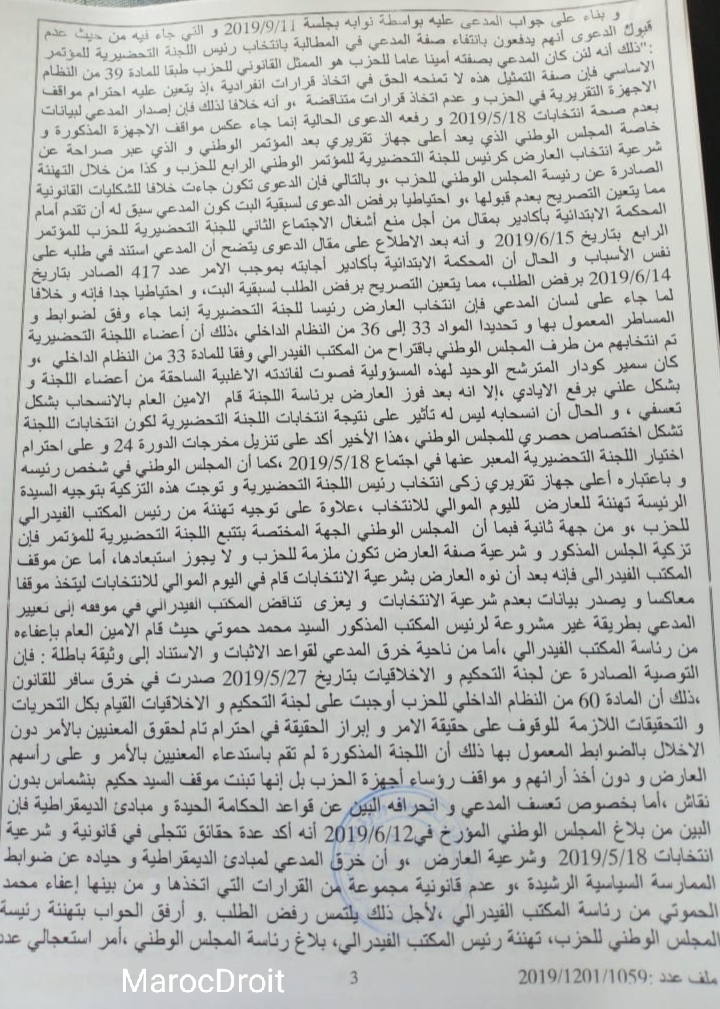 و بناء على جواب المدعى عليه بواسطة نوابه بجلسة 2019/9/11 و التي جاء فيه من حيث عدم
قبول الدعوى أنهم يدفعون بانتفاء صفة المدعي في المطالبة بانتخاب رئيس اللجنة التحضيرية للمؤتمر
:"ذلك أنه لئن كان المدعي بصفته أمينا عاما للحزب هو الممثل القانوني للحزب طبقا للمادة 39 من النظام
الاساسي فإن صفة التمثيل هذه لا تمنحه الحق في اتخاذ قرارات انفرادية ،إذ يتعين عليه احترام مواقف
الاجهزة التقريرية في الحزب و عدم اتخاذ قرارات متناقضة ،و أنه خلافا لذلك فإن إصدار المدعي لبيانات
بعدم صحة انتخابات 2019/5/18 و رفعه الدعوى الحالية إنما جاء عكس مواقف الاجهزة المذكورة و
خاصة المجلس الوطني الذي يعد أعلى جهاز تقريري بعد المؤتمر الوطني و الذي عبر صراحة عن
شرعية انتخاب العارض كرئيس للجنة التحضيرية للمؤتمر الوطني الرابع للحزب و كذا من خلال التهنئة
الصادرة عن رئيسة المجلس الوطني للحزب ،و بالتالي فإن الدعوى تكون جاءت خلافا للشكليات القانونية
مما يتعين التصريح بعدم قبولها ،و احتياطيا برفض الدعوى لسبقية البت كون المدعي سبق له أن تقدم أمام
المحكمة الابتدائية بأكادير بمقال من أجل منع أشغال الاجتماع الثاني للجنة التحضيرية للحزب للمؤتمر
الرابع بتاريخ 2019/6/15 و أنه بعد الاطلاع على مقال الدعوى يتضح أن المدعي استند في طلبه على
نفس الأسباب و الحال أن المحكمة الابتدائية بأكادير أجابته بموجب الامر عدد 417 الصادر بتاريخ
2019/6/14 برفض الطلب، مما يتعين التصريح برفض الطلب لسبقية البت، و احتياطيا جدا فإنه و خلافا
لما جاء على لسان المدعي فإن انتخاب العارض رئيسا للجنة التحضيرية إنما جاء وفق لضوابط و
المساطر المعمول بها و تحديدا المواد 33 إلى 36 من النظام الداخلي ،ذلك أن أعضاء اللجنة التحضيرية
تم انتخابهم من طرف المجلس الوطني باقتراح من المكتب الفيدرالي وفقا للمادة 33 من النظام الداخلي ،و
كان سمير كودار المترشح الوحيد لهذه المسؤولية فصوت لفائدته الاغلبية الساحقة من أعضاء اللجنة و
بشكل علني برفع الايادي ،إلا انه بعد فوز العارض برئاسة اللجنة قام الامين العام بالانسحاب بشكل
تعسفي ، و الحال أن انسحابه ليس له تأثير على نتيجة انتخابات اللجنة التحضيرية لكون انتخابات اللجنة
تشكل اختصاص حصري للمجلس الوطني ،هذا الأخير أكد على تنزيل مخرجات الدورة 24 و على احترام
اختيار اللجنة التحضيرية المعبر عنها في اجتماع 2019/5/18 ،كما أن المجلس الوطني في شخص رئيسه
و باعتباره أعلى جهاز تقريري زكى انتخاب رئيس اللجنة التحضيرية و توجت هذه التزكية بتوجيه السيدة
الرئيسة تهنئة للعارض لليوم الموالي للانتخاب ،علاوة على توجيه تهنئة من رئيس المكتب الفيدرالي
للحزب ،و من جهة ثانية فيما أن المجلس الوطني الجهة المختصة بتتبع اللجنة التحضيرية للمؤتمر فإن
تزكية الجلس المذكور و شرعية صفة العارض تكون ملزمة للحزب و لا يجوز استبعادها، أما عن موقف
المكتب الفيدرالي فإنه بعد أن نوه العارض بشرعية الانتخابات قام في اليوم الموالي للانتخابات ليتخذ موقفا
معاكسا و يصدر بيانات بعدم شرعية الانتخابات و يعزى تناقض المكتب الفيدرالي في موقفه إلى تغيير
المدعي بطريقة غير مشروعة لرئيس المكتب المذكور السيد محمد حموتي حيث قام الامين العام بإعفاءه
من رئاسة المكتب الفيدرالي ،أما من ناحية خرق المدعي لقواعد الاثبات و الاستناد إلى وثيقة باطلة : فإن
التوصية الصادرة عن لجنة التحكيم و الاخلاقيات بتاريخ 2019/5/27 صدرت في خرق سافر للقانون
،ذلك أن المادة 60 من النظام الداخلي للحزب أوجبت على لجنة التحكيم و الاخلاقيات القيام بكل التحريات
و التحقيقات اللازمة للوقوف على حقيقة الامر و إبراز الحقيقة في احترام تام لحقوق المعنيين بالأمر دون
الاخلال بالضوابط المعمول بها ذلك أن اللجنة المذكورة لم تقم باستدعاء المعنيين بالأمر و على رأسهم
العارض و دون أخذ أرائهم و مواقف رؤساء أجهزة الحزب بل إنها تبنت موقف السيد حكيم بنشماس بدون
نقاش ،أما بخصوص تعسف المدعي و انحرافه البين عن قواعد الحكامة الجيدة و مبادئ الديمقراطية فإن
البين من بلاغ المجلس الوطني المؤرخ في2019/6/12 أنه أكد عدة حقائق تتجلى في قانونية و شرعية
انتخابات 2019/5/18 وشرعية العارض ،و أن خرق المدعي لمبادئ الديمقراطية و حياده عن ضوابط
الممارسة السياسية الرشيدة ،و عدم قانونية مجموعة من القرارات التي اتخذها و من بينها إعفاء محمد
الحموتي من رئاسة المكتب الفيدرالي ،لأجل ذلك يلتمس رفض الطلب .و أرفق الجواب بتهنئة رئيسة
المجلس الوطني للحزب، تهنئة رئيس المكتب الفيدرالي، بلاغ رئاسة المجلس الوطني ،أمر استعجالي عدد
ملف عدد :2019/1201/1059
3
MarocDroit